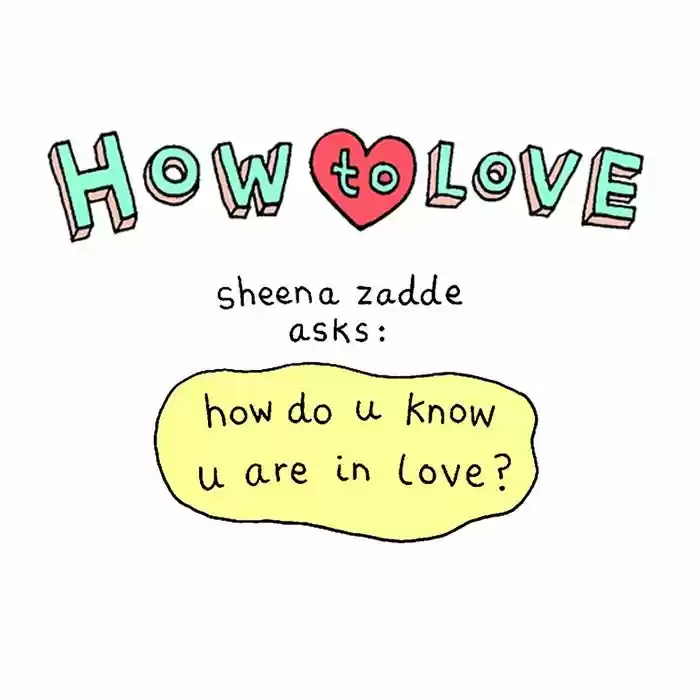 HOW to LOVE
sheena zadde
asks:
how do u know
u are in love?